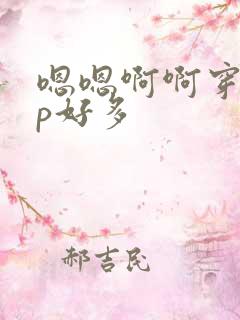 嗯嗯啊啊穿
p好多
郝吉民